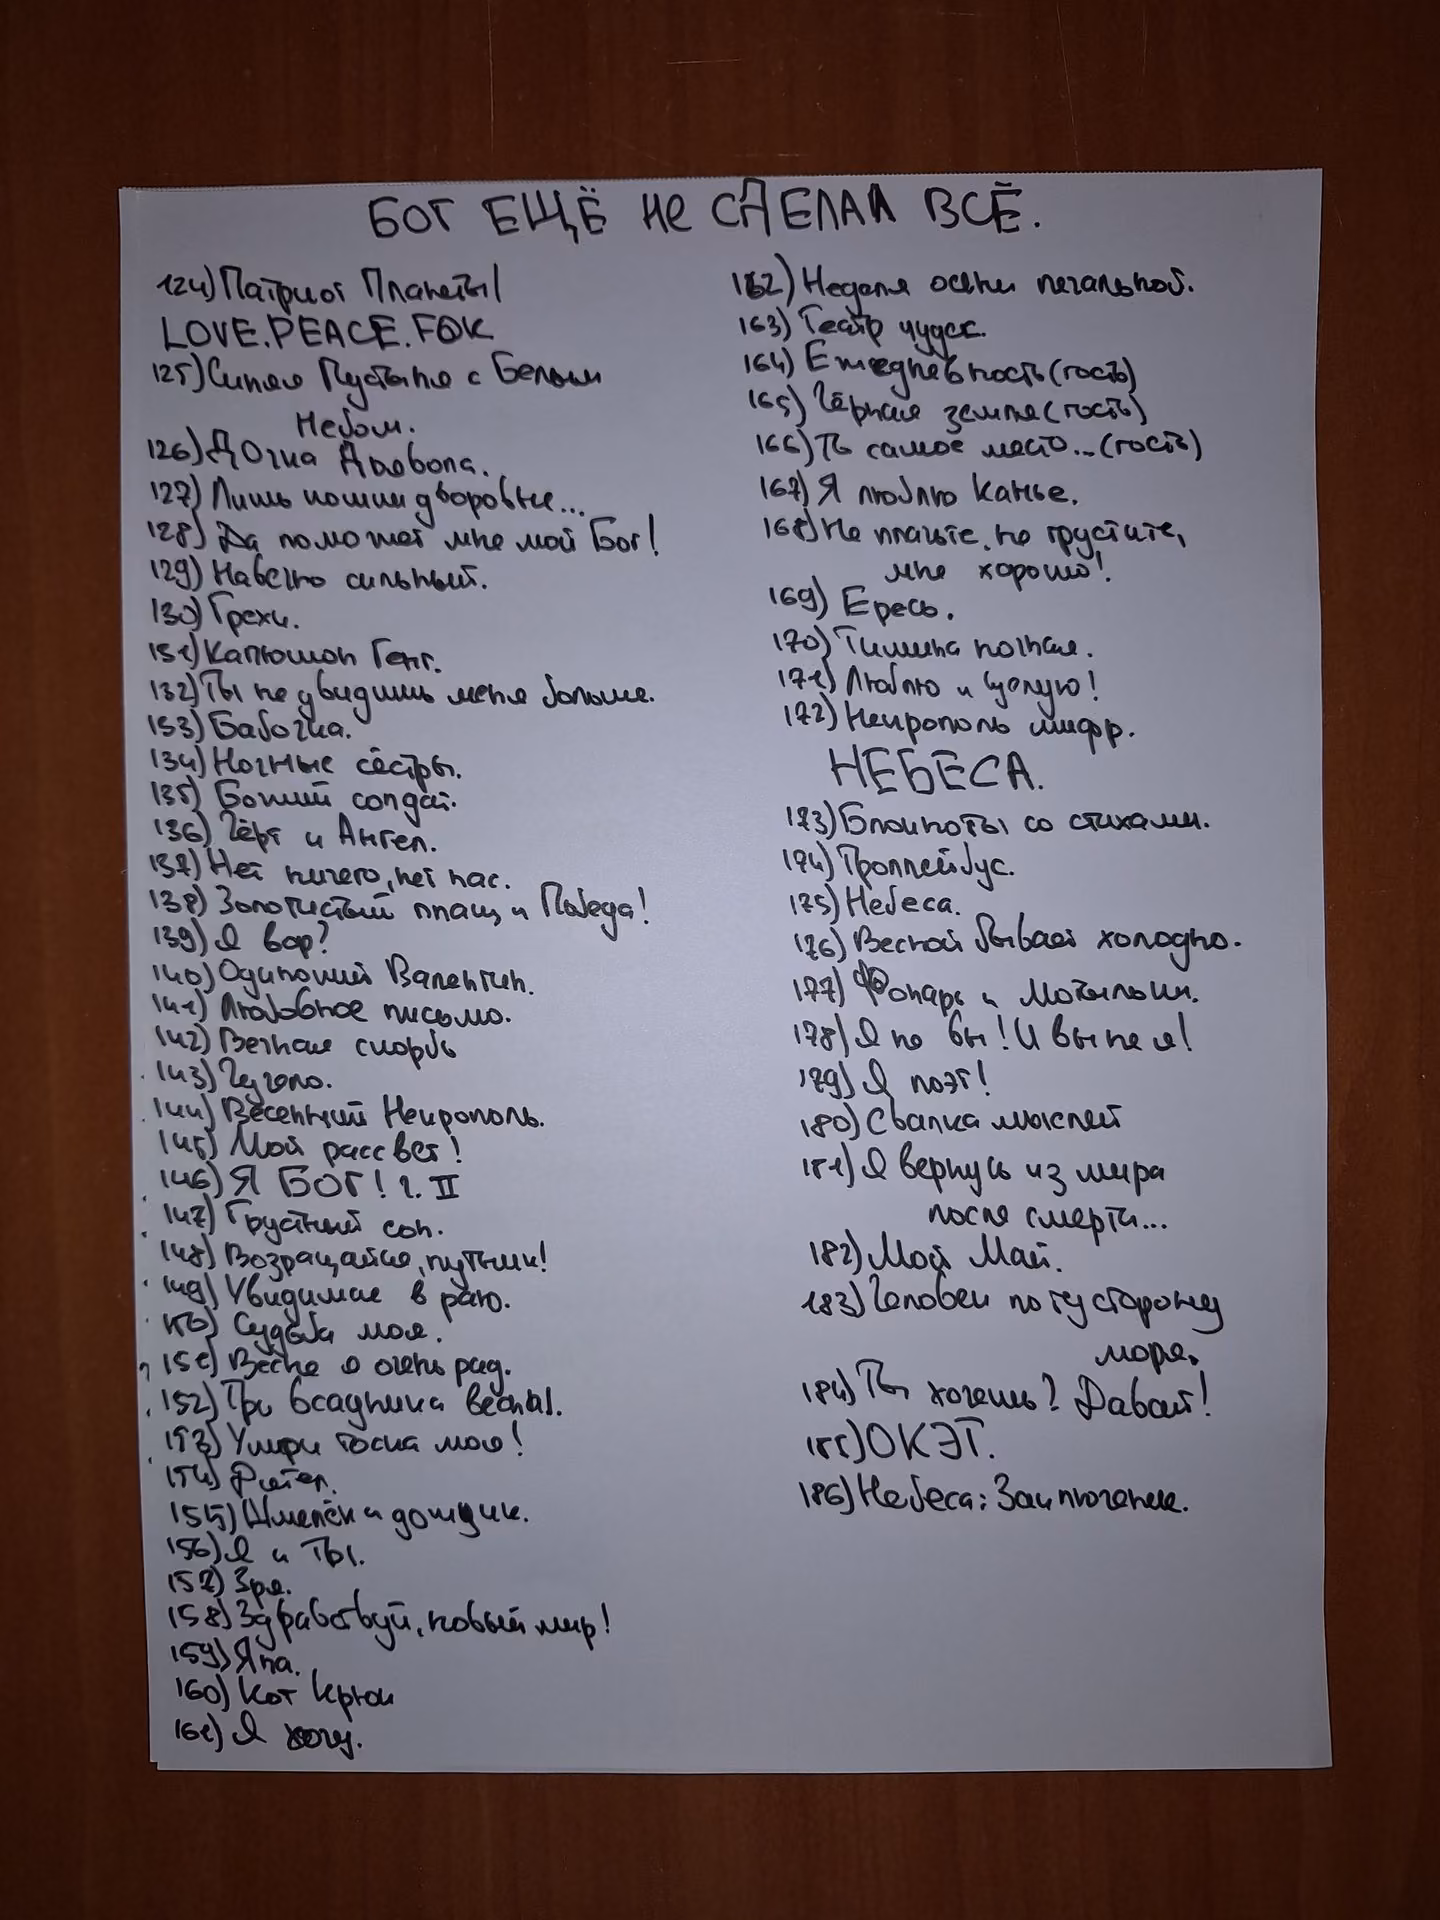 БОГ ЕЩЁ НЕ СДЕЛАЛ ВСЁ.
124) Патриот Планеты
LOVE.PEACE.FOK
125) Синяя Пустыня с Белым
Небом.
126) Дочка Дьявола.
127) Лишь кошки дворовые...
128) Да поможет мне мой Бог!
129) Навечно сильный.
130) Грехи.
131) Капюшон Генг.
132) Ты не увидишь меня больше.
133) Бабочка.
134) Ночные сёстры.
135) Божий солдат.
136) Чёрт и Ангел.
137) Нет ничего, нет нас.
138) Золотистый плащ и Победа!
139) Я вор?
140) Одинокий Валентин.
141) Любовное письмо.
142) Вечная скорбь
143) Чучело.
144) Весенний Некрополь.
145) Мой рассвет!
146) Я БОГ! ч. II
147) Грустный сон.
148) Возращайся, путник!
149) Увидимся в раю.
150) Судьба моя.
151) Весне я очень рад.
152) Три всадника весны.
153) Умри тоска моя!
154) Фител.
155) Шмелёк и дождик.
156) Я и Ты.
157) Зря.
158) Здравствуй, новый мир!
159) Яна.
160) Кот Крюк
161) Я хочу.
162) Неделя осени печальной.
163) Театр чудес.
164) Ежедневность (гость)
165) Чёрная земля (гость)
166) То самое место... (гость)
167) Я люблю Канье.
168) Не плачьте, не грустите,
мне хорошо!
169) Ересь.
170) Тишина ночная.
171) Люблю и целую!
172) Некрополь шифр.
НЕБЕСА.
173) Блокноты со стихами.
174) Троллейбус.
175) Небеса.
176) Весной бывает холодно.
177) Фонарь и Мотыльки.
178) Я не вы! И вы не я!
179) Я поэт!
180) Свалка мыслей
181) Я вернусь из мира
после смерти...
182) Мой Май.
183) Человек по ту сторону
моря.
184) Ты хочешь? Давай!
185) ОКЭТ.
186) Небеса: Заключение.